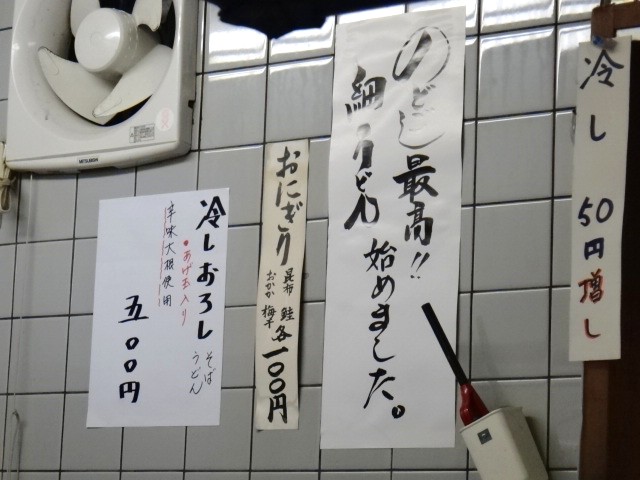 冷し 50円増し
のどごし最高!!
細うどん 始めました。
おにぎり
昆布 鮭
おかか 梅干
各100円
冷しおろし
そば
うどん
•あげ玉入り
辛味大根使用
五00円
MITSUBISHI